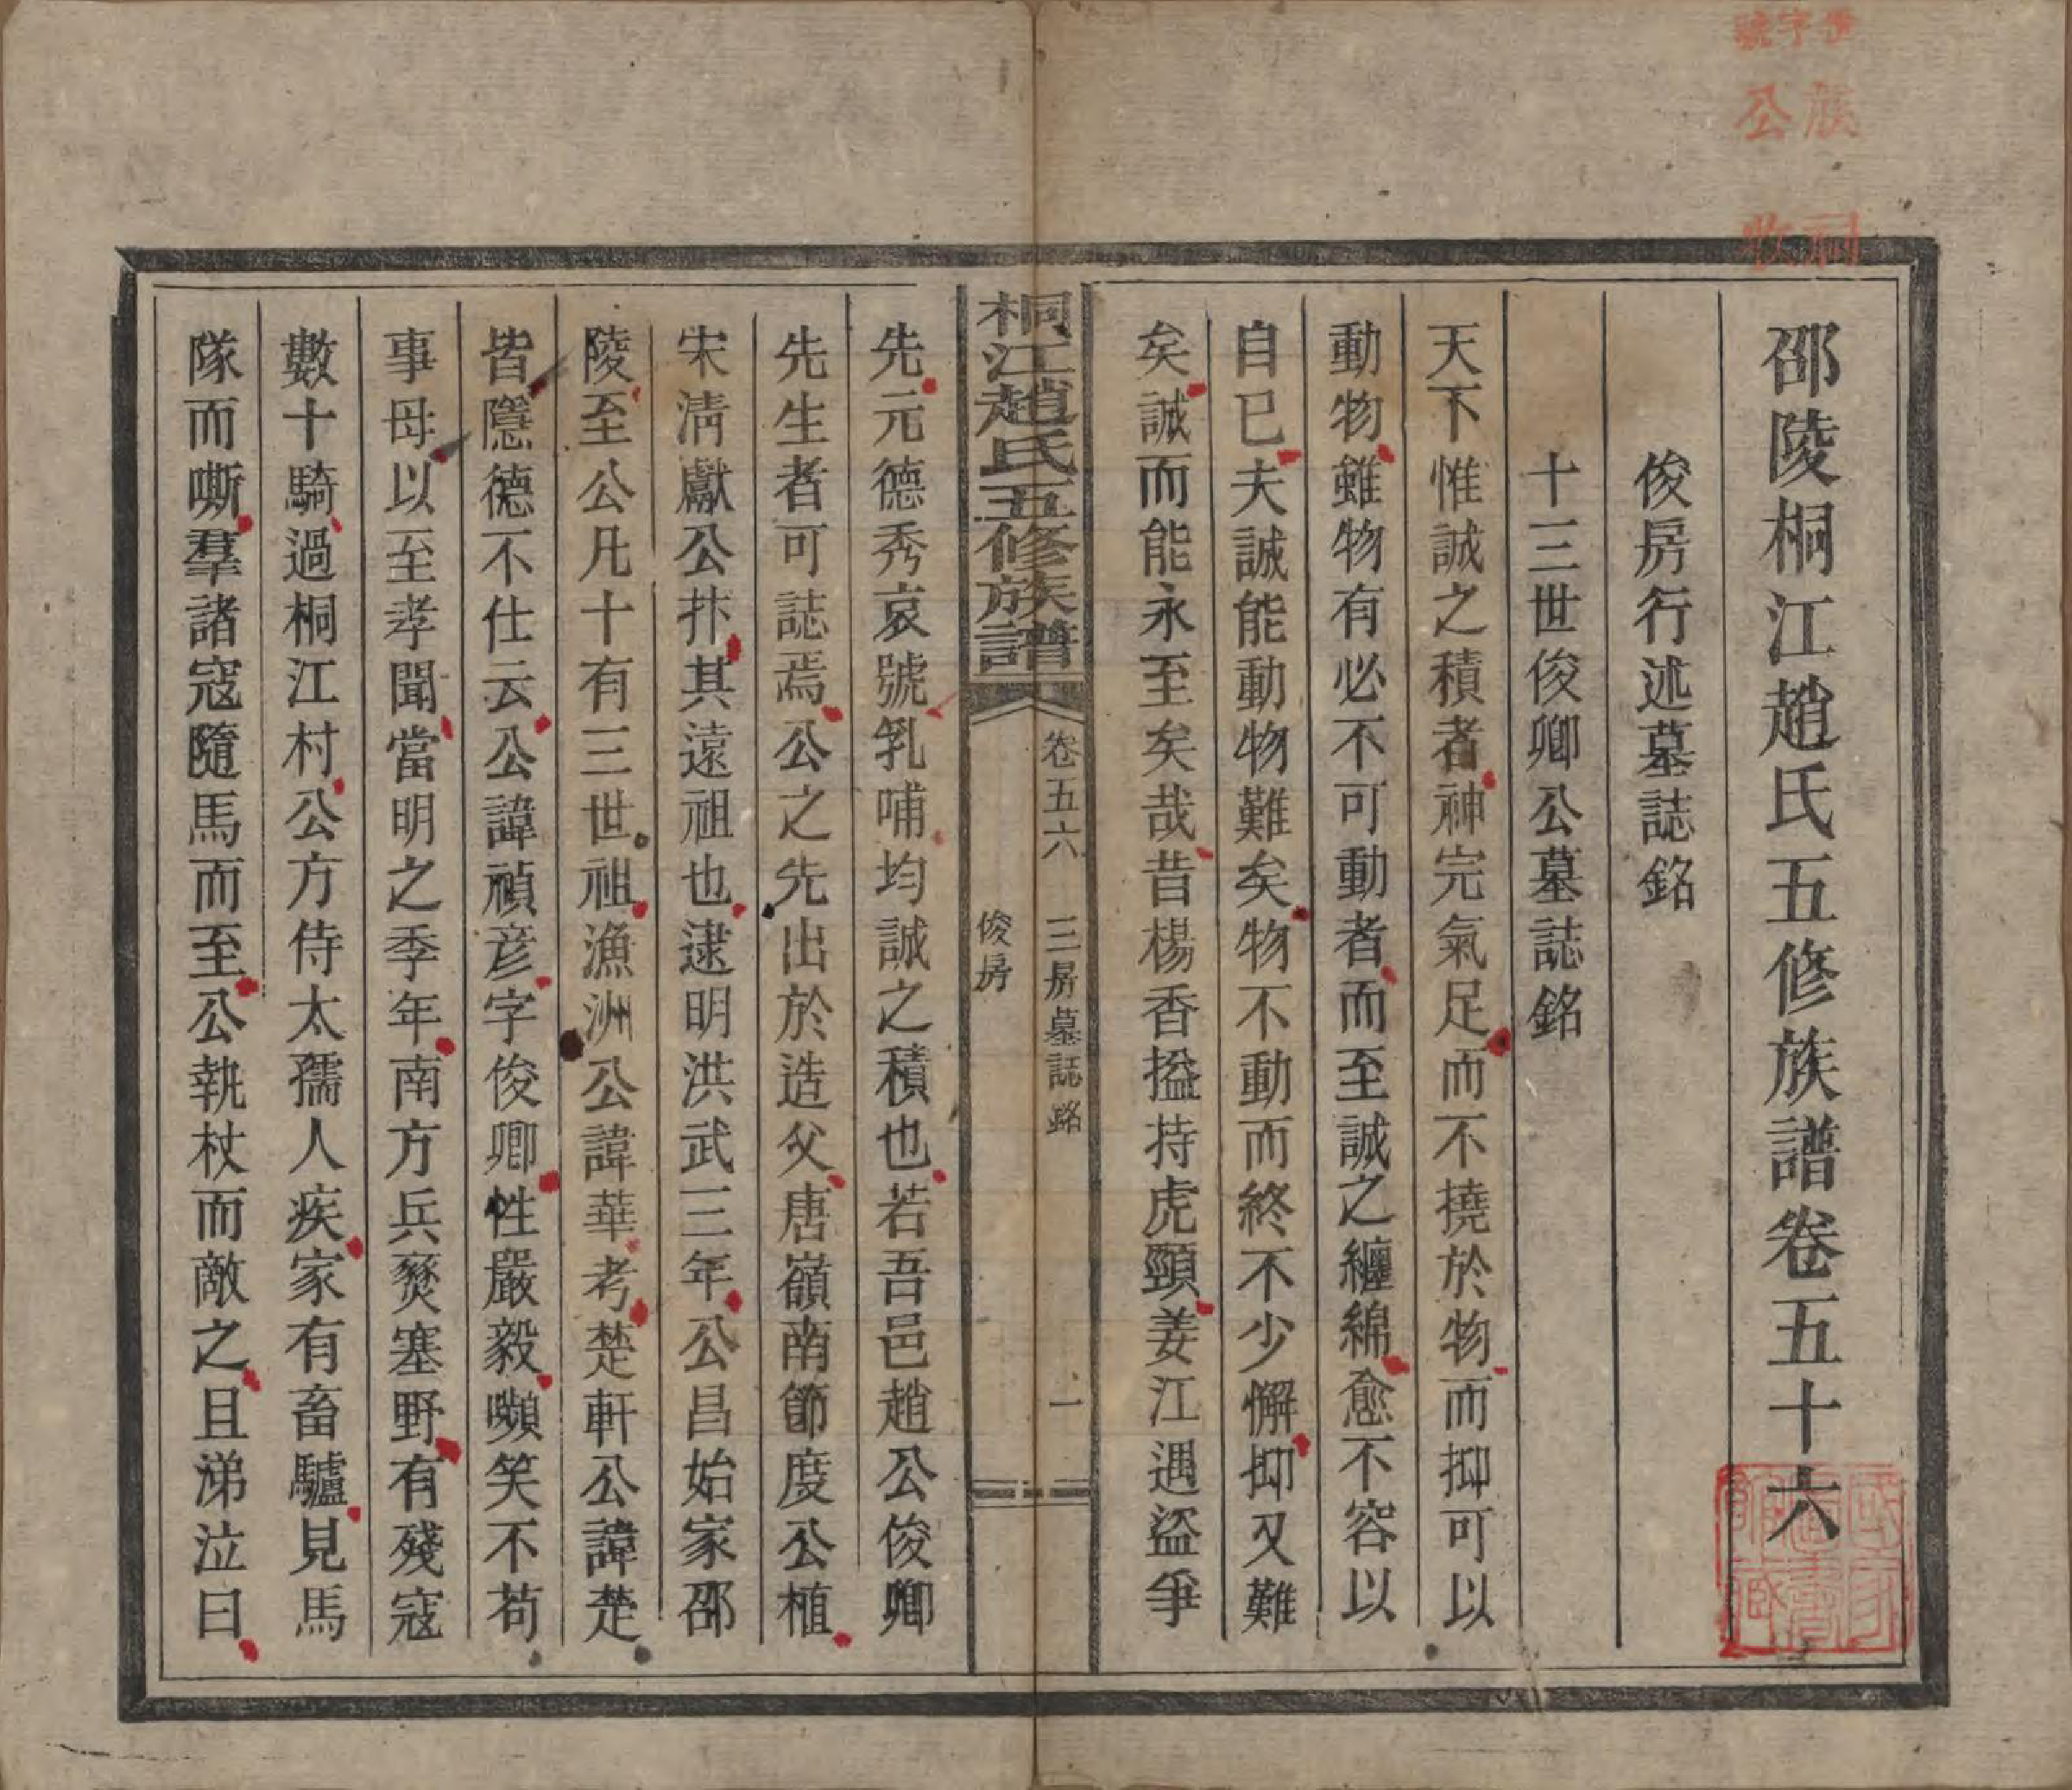 邵陵桐江趙氏五修族譜卷五十六
俊房行述墓誌銘
十三世俊卿公墓誌銘
天下惟誠之積者神完氣足而不撓於物而抑可以
動物雖物有必不可動者而至誠之纏綿愈不容以
自已夫誠能動物難矣物不動而終不少懈抑又難
矣誠而能永至矣哉昔楊香搤持虎頸姜江遇盜爭
桐江趙氏五修族譜
卷五六
三房墓誌銘
俊房
一
先元德秀哀號乳哺均誠之積也若吾邑趙公俊卿
先生者可誌焉公之先出於造父唐嶺南節度公植
宋清獻公抃其遠祖也逮明洪武三年公昌始家邵
陵至公凡十有三世祖漁洲公諱華考楚軒公諱楚
皆隱德不仕云公諱禎彥字俊卿性嚴毅嚬笑不苟
事母以至孝聞當明之季年南方兵燹塞野有殘寇
數十騎過桐江村公方侍太孺人疾家有畜驢見馬
隊而嘶羣諸寇隨馬而至公執杖而敵之且涕泣曰
字號
族公
祠收